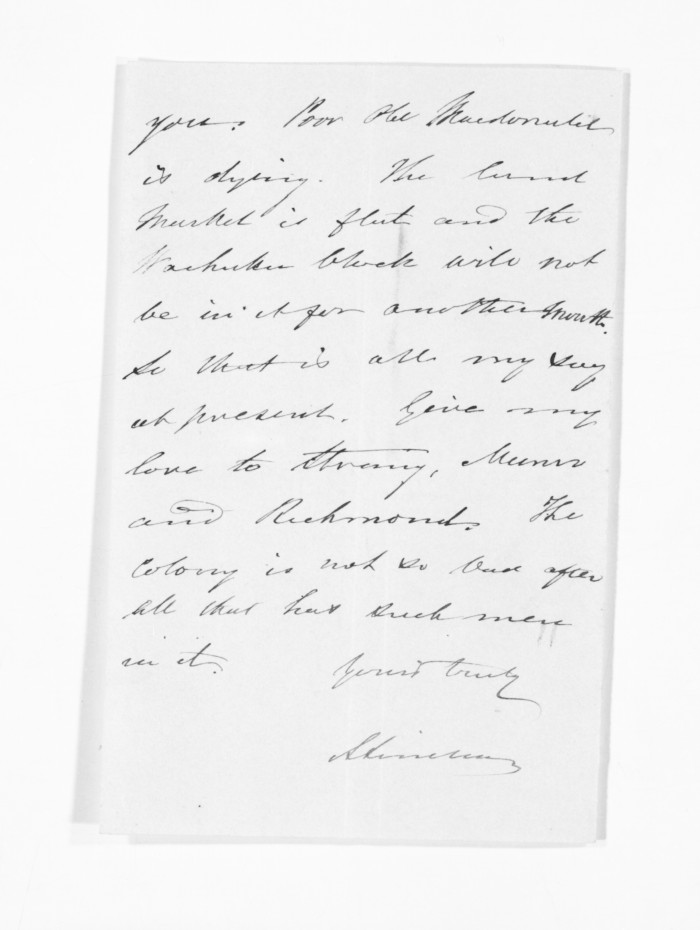 you. Poor Old Macdonald
is dying. The land
Market is flat and the
block will not
be in it for another month.
So that is all my say
at present. Give my
love to Strong, Munro
and Richmond. The
Colony is not so bad after
all that has such men
in it.
Yours truly